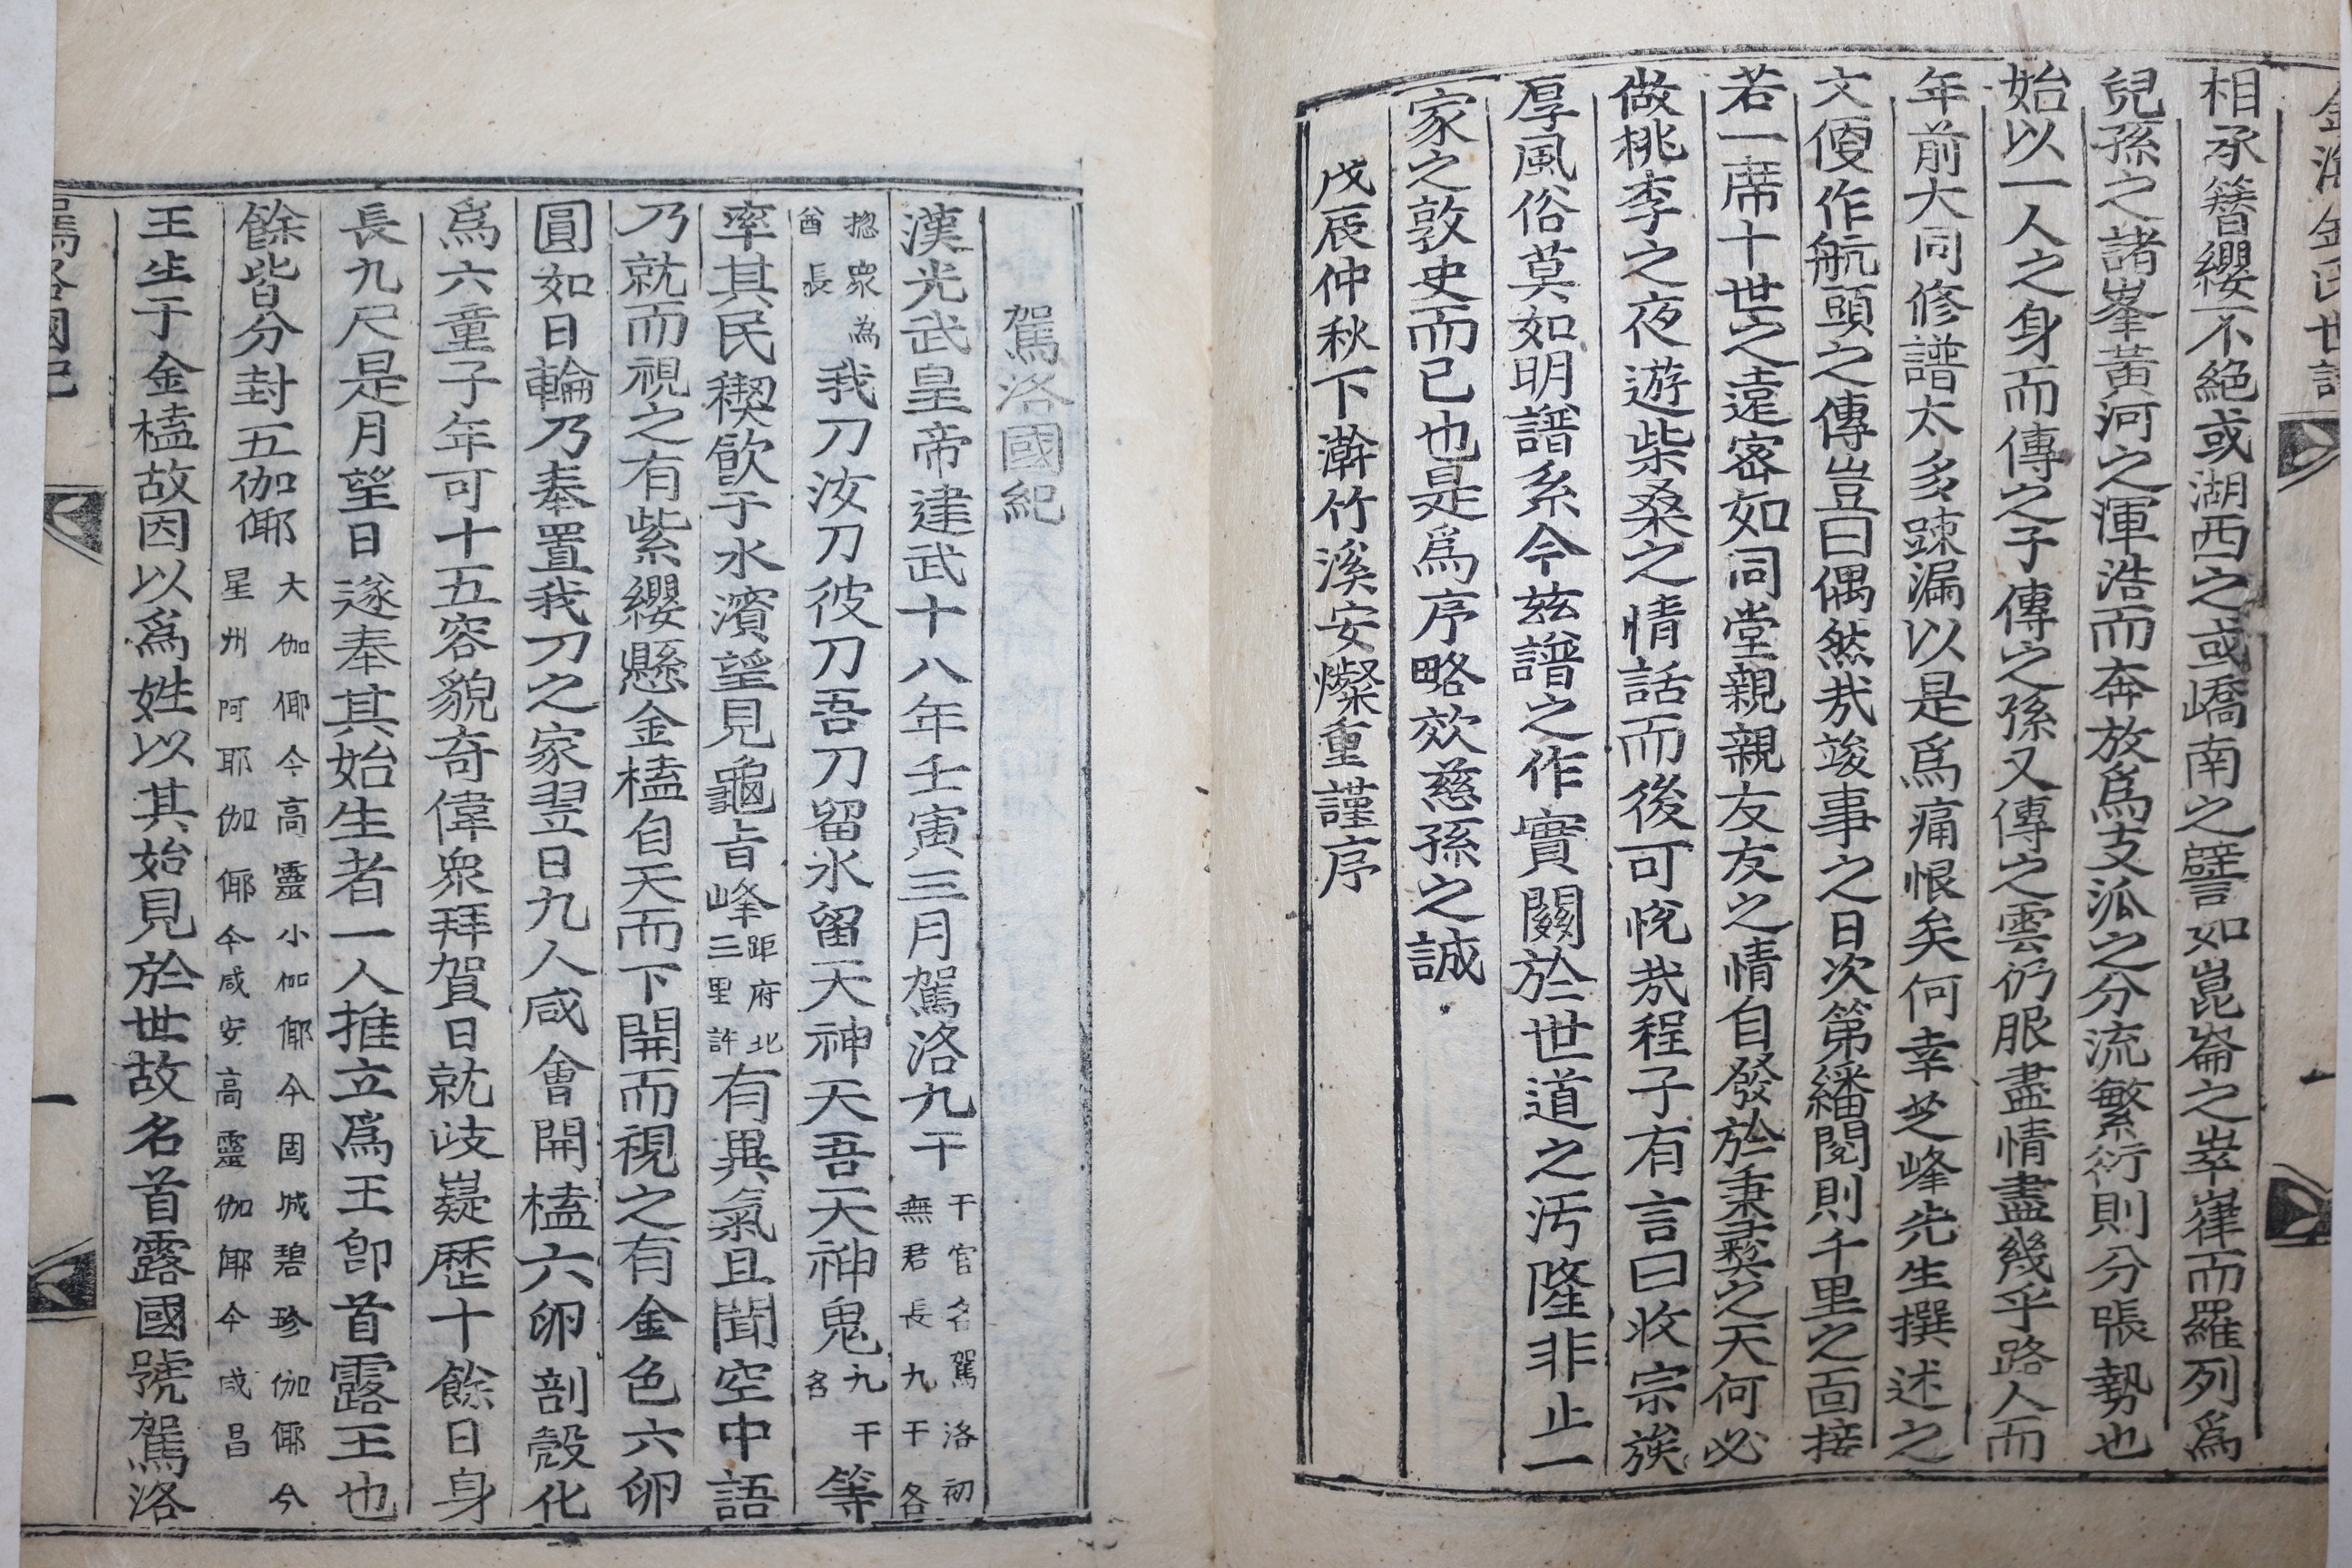 金海金氏世譜
一
相承簪纓不絶或湖西之或嶠南之譬如崑崙之崒嵂而羅列爲
兒孫之諸峯黃河之渾浩而奔放爲支派之分流繁衍則分張勢也
始以一人之身而傳之子傳之孫又傳之雲仍服盡情盡幾乎路人而
年前大同修譜太多踈漏以是爲痛恨矣何幸芝峰先生撰述之
文偠作航頭之傳豈曰偶然㢤竣事之日次第繙閱則千里之面接
若一席十世之遠宻如同堂親親友友之情自發於秉彛之天何必
做桃李之夜遊柴桑之情話而後可悅㢤程子有言曰收宗族
厚風俗莫如明譜系今玆譜之作實關於世道之汚隆非止一
家之敦史而已也是爲序略效慈孫之誠
戊辰仲秋下澣竹溪安燦重謹序
駕洛國紀
漢光武皇帝建武十八年壬寅三月駕洛九干 干官名駕洛初無君長九干各
揔衆為酋長 我刀汝刀彼刀吾刀留水留天神天吾天神鬼 九干名 等
率其民禊飮于水濱望見龜旨峰 距府北三里許 有異氣且聞空中語
乃就而視之有紫纓懸金榼自天而下開而視之有金色六卵
圓如日輪乃奉置我刀之家翌日九人咸會開榼六卵剖殼化
爲六童子年可十五容貌奇偉衆拜賀日就岐嶷歷十餘日身
長九尺是月望日遂奉其始生者一人推立爲王卽首露王也
餘皆分封五伽倻 大伽倻今高靈小伽倻今固城碧珍伽倻今星州阿耶伽倻今咸安高靈伽倻今咸昌
王生于金榼故因以爲姓以其始見於世故名首露國號駕洛
駕洛國紀
一